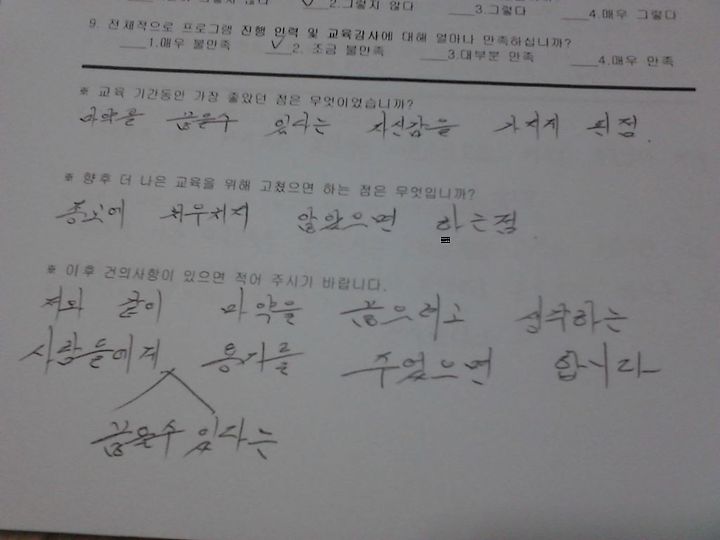 2.그렇지 않다 ___3.그렇다 ___4.매우 그렇다
9. 전체적으로 프로그램 진행 인력 및 교육강사에 대해 얼마나 만족하십니까?
___1.매우 불만족 ✓2. 조금 불만족 ___3.대부분 만족 ___4.매우 만족
※ 교육 기간동안 가장 좋았던 점은 무엇이었습니까?
마약을 끊을수 있다는 자신감을 가지게 된점.
※ 향후 더 나은 교육을 위해 고쳤으면 하는 점은 무엇입니까?
종교에 치우치지 않았으면 하는점
※ 이후 건의사항이 있으면 적어 주시기 바랍니다.
저와 같이 마약을 끊으려고 하는
사람들에게 용기를 주었으면 합니다
끊을수 있다는